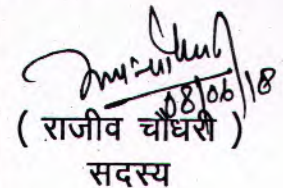 08/06/18
( राजीव चौधरी )
सदस्य